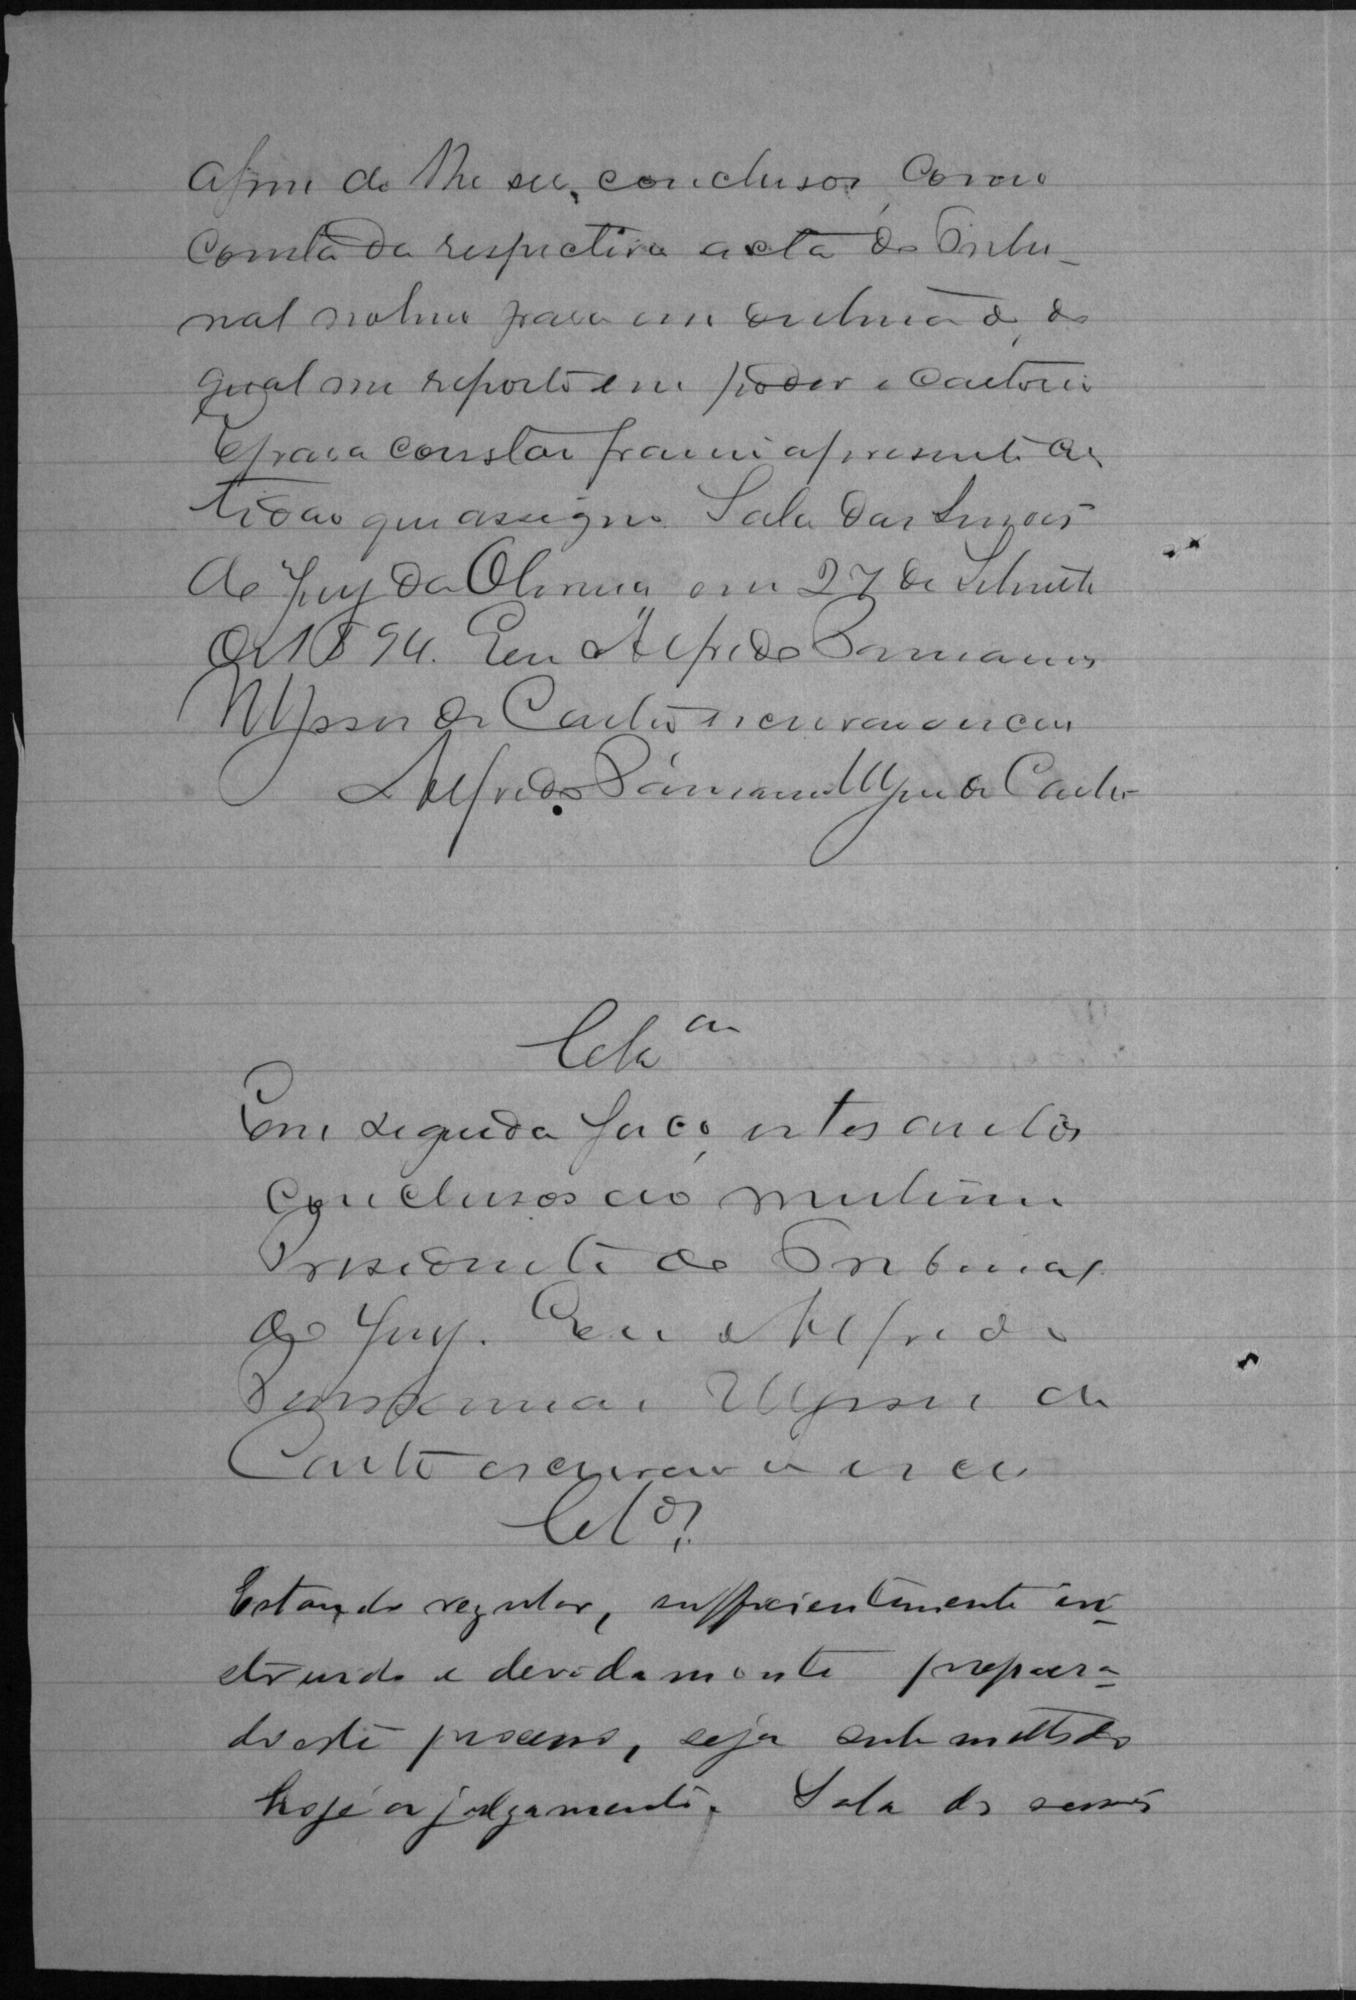 afim de lhe ser conclusos, como
consta da respectiva acta do Tribu-
nal
qual me reporto em poder e cartorio
E para constar passei a presente cer
tidão que assigno. Sala das Sessões
do Jury da Oliveira em 27 de Setembro
de 1894. Eu Alfredo Parmanio
Ulysses de Castro escrivão escrevi
Alfredo Ulysses de Castro
Cls.am
Em seguida faço estes autos
conclusos ao meretissimo
Presidente do Tribunal
do Jury. Eu Alfredo
Ulysses de
Castro escrivão escrevi
Cls.os
Estando regular, sufficientemente in-
struido e devidamente prepara-
do este processo, seja submettido
hoje a julgamento. Sala das sessões